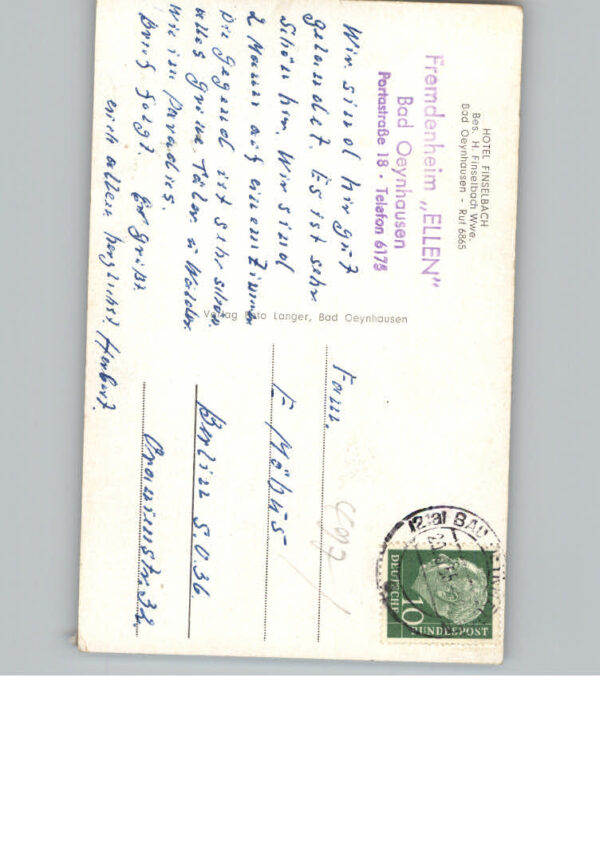 HOTEL FINSELBACH
Bes. H. Finselbach Wwe.
Bad Oeynhausen - Ruf 6865
Fremdenheim „ELLEN"
Bad Oeynhausen
Portastraße 18 • Telefon 6175
Wir sind hir gut
gelandet. Es ist sehr
schön hir. Wir sind
2 Mann auf einem Zimmer
Die Gegend ist sehr schön
alles grün Täler u Wälder
wie im Paradies.
Brief folgt. Es grüßt
euch allen herzlichst Herbert.
Verlag Otto Langer, Bad Oeynhausen
Fam.
E. Möbus
Berlin S.O.36.
Oranienstr. 32.
(21a) BAD
DEUTSCHE
BUNDESPOST
10